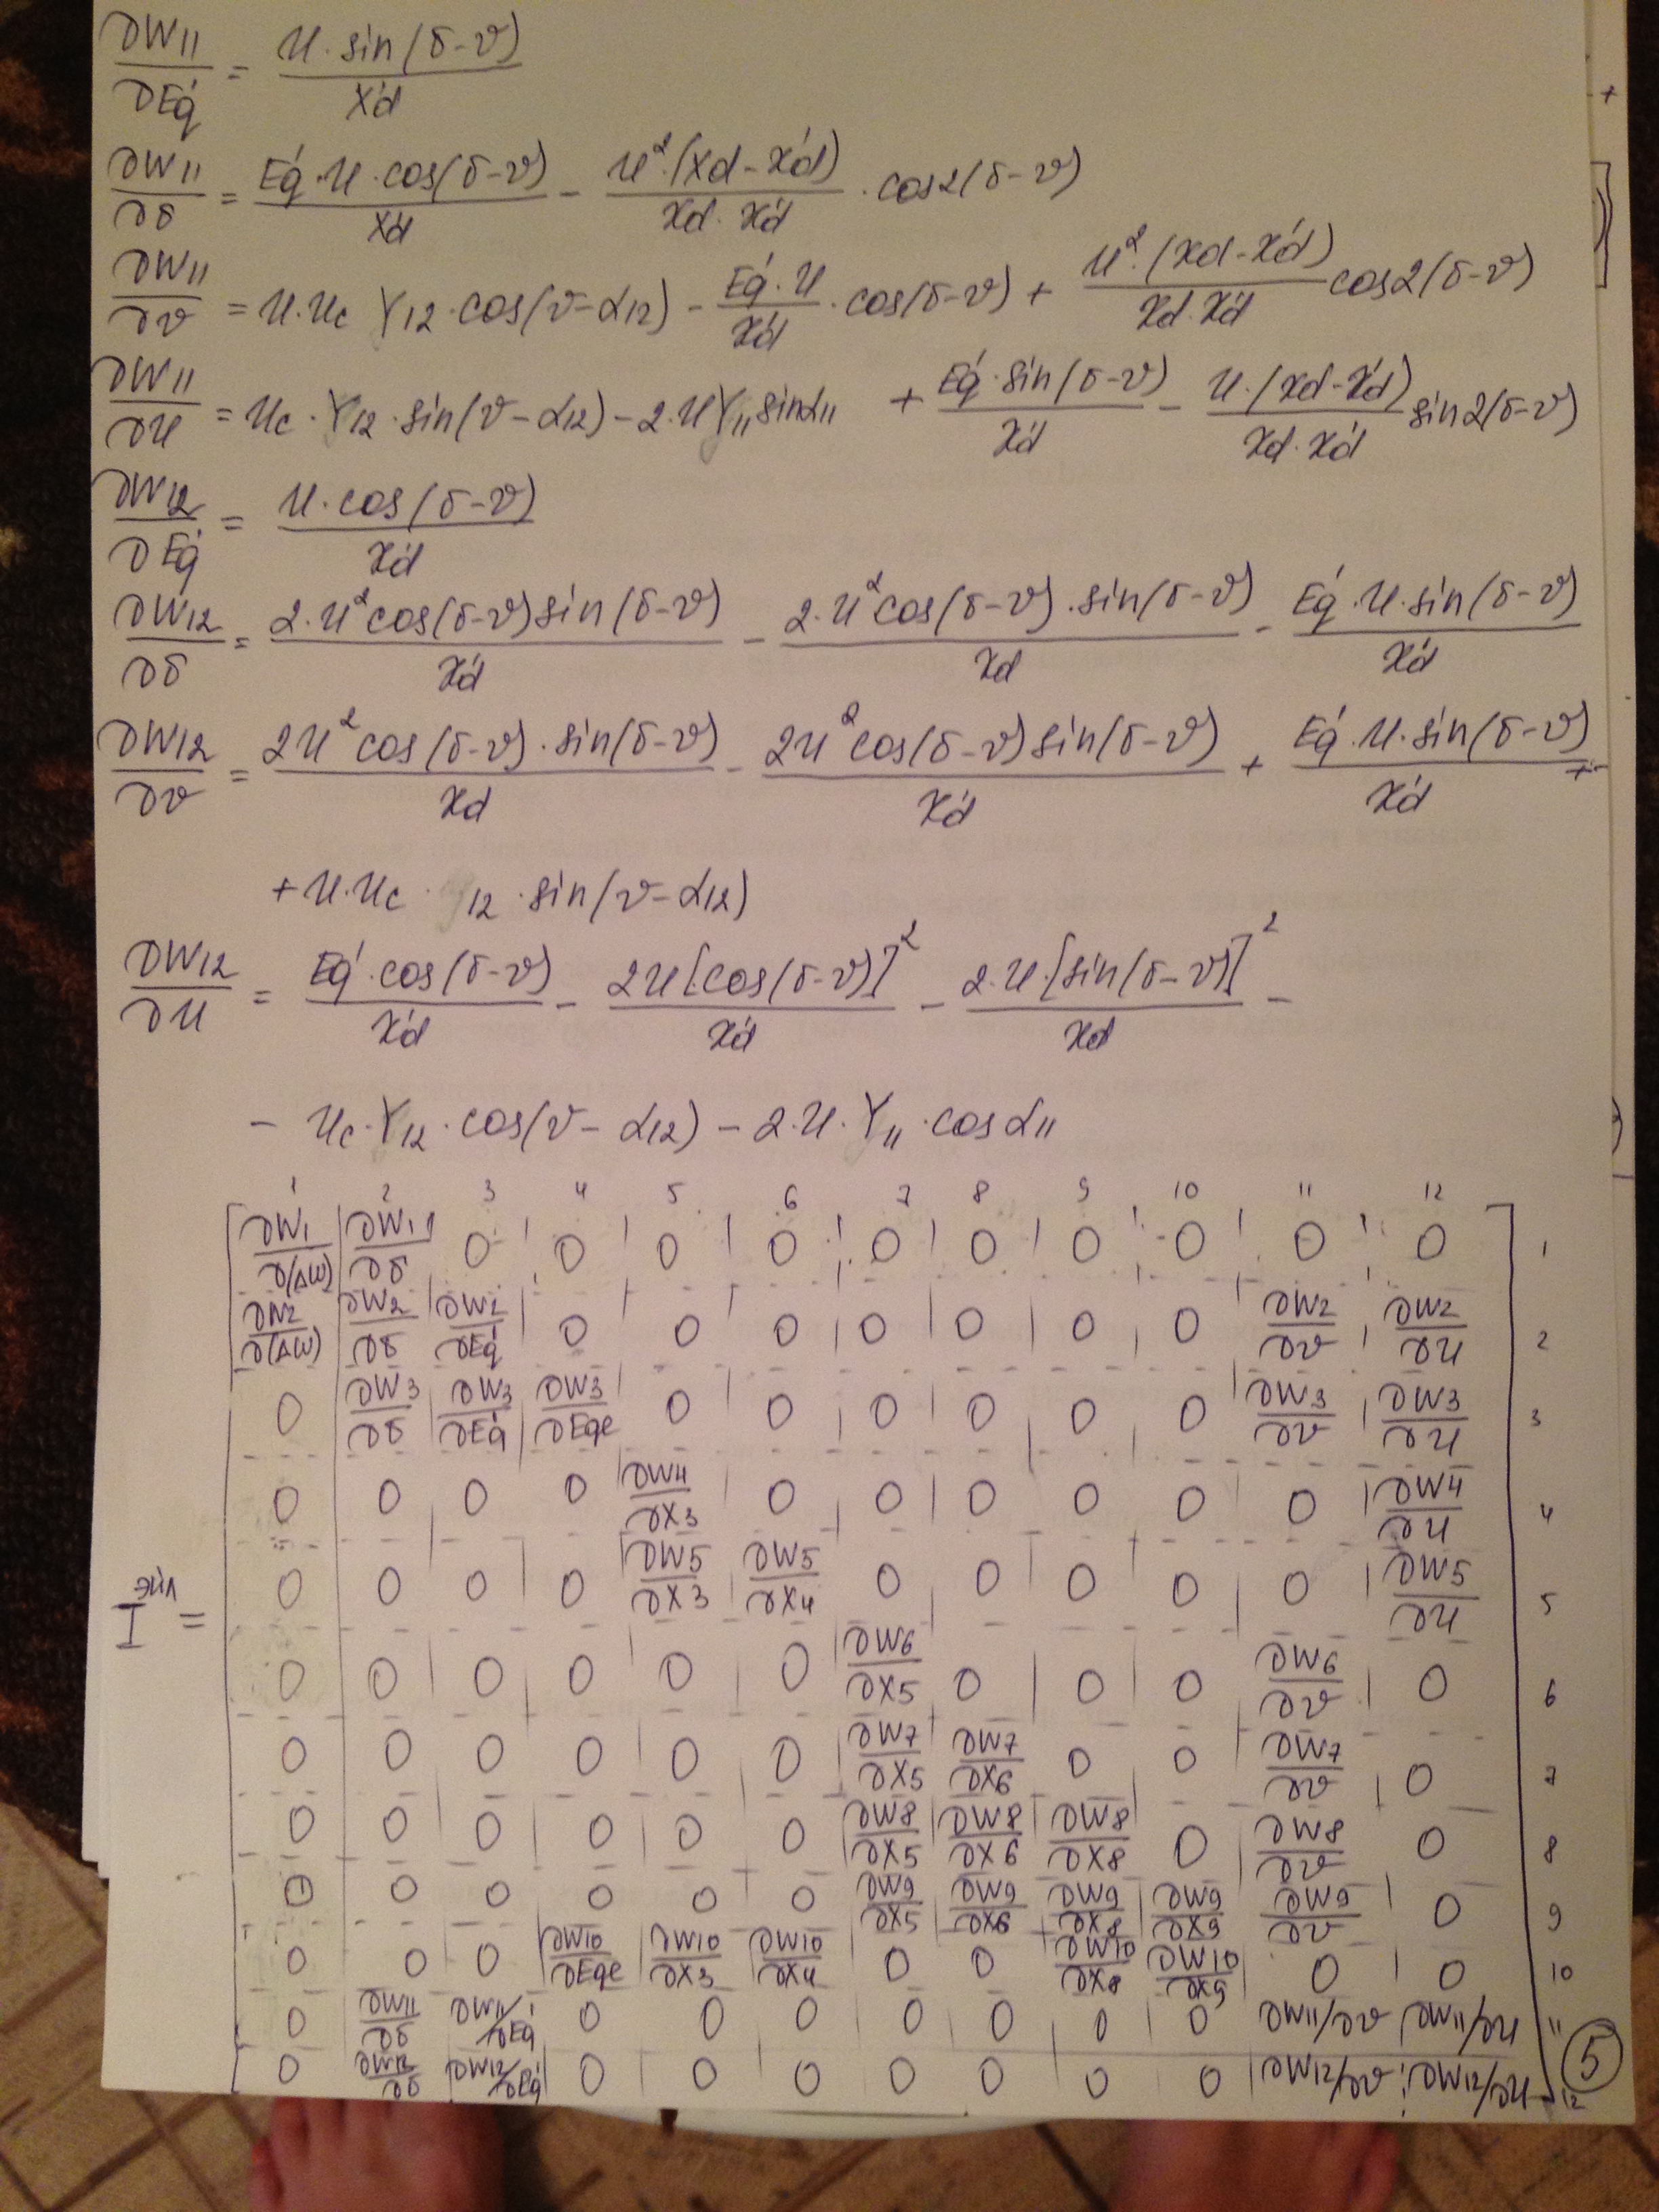 ∂W11/∂E'q = U·sin(δ-ϑ)/X'd
∂W11/∂δ = E'q·U·cos(δ-ϑ)/X'd - U²·(Xd-X'd)/(Xd·X'd) ·cos2(δ-ϑ)
∂W11/∂ϑ = U·Uc Y12·cos(ϑ-α12) - E'q·U/X'd ·cos(δ-ϑ) + U²·(Xd-X'd)/(Xd·X'd) cos2(δ-ϑ)
∂W11/∂U = Uc·Y12·sin(ϑ-α12) - 2·UY11 sinα11 + E'q·sin(δ-ϑ)/X'd - U·(Xd-X'd)/(Xd·X'd) sin2(δ-ϑ)
∂W12/∂E'q = U·cos(δ-ϑ)/X'd
∂W12/∂δ = 2·U²cos(δ-ϑ)sin(δ-ϑ)/X'd - 2·U²cos(δ-ϑ)·sin(δ-ϑ)/Xd - E'q·U·sin(δ-ϑ)/X'd
∂W12/∂ϑ = 2U²cos(δ-ϑ)·sin(δ-ϑ)/Xd - 2U²cos(δ-ϑ)sin(δ-ϑ)/X'd + E'q·U·sin(δ-ϑ)/X'd +
+U·Uc· y12·sin(ϑ-α12)
∂W12/∂U = E'q·cos(δ-ϑ)/X'd - 2U[cos(δ-ϑ)]²/X'd - 2·U·[sin(δ-ϑ)]²/Xd -
- Uc·Y12·cos(ϑ-α12) - 2·U·Y11·cosα11
1 2 3 4 5 6 7 8 9 10 11 12
∂W1/∂(Δω) ∂W1/∂δ 0 0 0 0 0 0 0 0 0 0 1
∂W2/∂(Δω) ∂W2/∂δ ∂W2/∂E'q 0 0 0 0 0 0 0 ∂W2/∂ϑ ∂W2/∂U 2
0 ∂W3/∂δ ∂W3/∂E'q ∂W3/∂Eqe 0 0 0 0 0 0 ∂W3/∂ϑ ∂W3/∂U 3
0 0 0 0 ∂W4/∂X3 0 0 0 0 0 0 ∂W4/∂U 4
I = 0 0 0 0 ∂W5/∂X3 ∂W5/∂X4 0 0 0 0 0 ∂W5/∂U 5
0 0 0 0 0 0 ∂W6/∂X5 0 0 0 ∂W6/∂ϑ 0 6
0 0 0 0 0 0 ∂W7/∂X5 ∂W7/∂X6 0 0 ∂W7/∂ϑ 0 7
0 0 0 0 0 0 ∂W8/∂X5 ∂W8/∂X6 ∂W8/∂X8 0 ∂W8/∂ϑ 0 8
0 0 0 0 0 0 ∂W9/∂X5 ∂W9/∂X6 ∂W9/∂X8 ∂W9/∂X9 ∂W9/∂ϑ 0 9
0 0 0 ∂W10/∂Eqe ∂W10/∂X3 ∂W10/∂X4 0 0 ∂W10/∂X8 ∂W10/∂X9 0 0 10
0 ∂W11/∂δ ∂W11/∂E'q 0 0 0 0 0 0 0 ∂W11/∂ϑ ∂W11/∂U 11
0 ∂W12/∂δ ∂W12/∂E'q 0 0 0 0 0 0 0 ∂W12/∂ϑ ∂W12/∂U 12
5